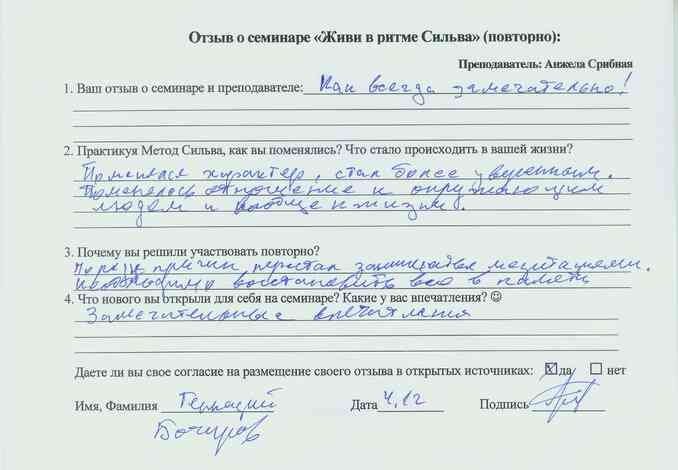 Отзыв о семинаре «Живи в ритме Сильва» (повторно):
Преподаватель: Анжела Срибная
1. Ваш отзыв о семинаре и преподавателе: Как всегда замечательно!
2. Практикуя Метод Сильва, как вы поменялись? Что стало происходить в вашей жизни?
Поменялся характер, стал более уверенным.
Поменялось отношение к окружающим
людям и вообще к жизни.
3. Почему вы решили участвовать повторно?
причин перестал заниматься медитациями.
Необходимо восстановить всё в памяти
4. Что нового вы открыли для себя на семинаре? Какие у вас впечатления? ☺
Замечательные впечатления
Даете ли вы свое согласие на размещение своего отзыва в открытых источниках: ☒ да ☐ нет
Имя, Фамилия Геннадий Дата Подпись